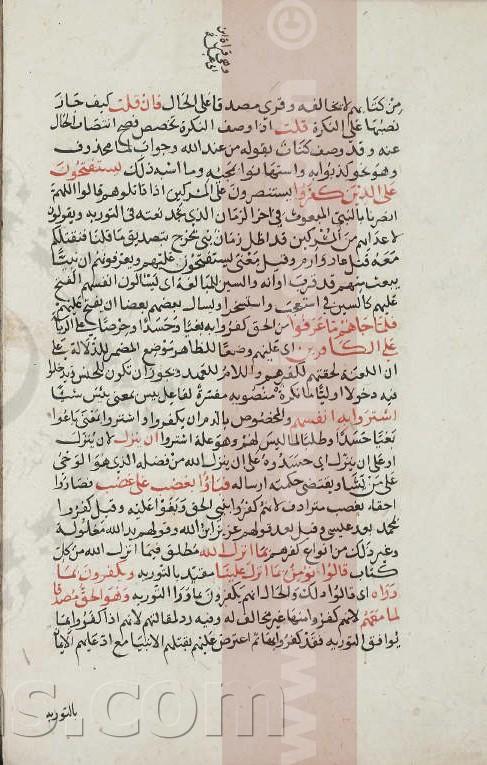 وهي قراءة ابن
من كتابهم لا يخالفه وقرى مصدقا على الحال فان قلت كيف جاز
نصبها على النكرة قلت اذا وصف النكرة تخصص فصح انتصاب الحال
عنه وقد وصف كتاب بقوله من عند الله وجواب لما محذوف
وهو نحو كذبوا به واستهانوا بمجيئه وما اشبه ذلك يستفتحون
على الذين كفروا يستنصرون على المشركين اذا قاتلوهم قالوا اللهم
انصرنا بالنبي المبعوث في اخر الزمان الذي نجد نعته في التوريه ويقولون
لاعدائهم من المشركين قد اظل زمان نبي يخرج بتصديق ما قلنا فنقتلكم
معه قتل عاد وارم وقيل معنى يستفتحون عليهم ويعرفونهم ان نبيا
يبعث منهم قد قرب اوانه والسين للمبالغه اي يسالون انفسهم الفتح
عليهم كالسين في استعجب واستسخر او يسال بعضهم بعضا ان يفتح عليهم
فلما جاهم ما عرفوا من الحق كفروا به بغيا وحسدا وحرصا على الرياسة
على الكافرين اي عليهم وضعا للظاهر موضع المضمر للدلالة على
ان اللعنة لحقتهم لكفرهم واللام للعهد ويجوز ان تكون للجنس ويدخلوا
فيه دخولا اوليا ما نكرة منصوبه مفسرة لفاعل بيس بمعنى بيس شيا
اشتروا به انفسهم والمخصوص بالذم ان يكفروا واشتروا بمعنى باعوا
بغيا حسدا وطلبا لما ليس لهم وهو علة اشتروا ان ينزل لان ينزل
او على ان ينزل اي حسدوه على ان ينزل الله من فضله الذي هو الوحي
على من يشاء ويقتضي حكمته ارساله فباؤا بغضب على غضب فصاروا
احقاء بغضب مترادف لانهم كفروا بنبي الحق وبغوا عليه وقيل كفروا
بمحمد بعد عيسى وقيل بعد قولهم عزير ابن الله وقولهم يد الله مغلولة
وغير ذلك من انواع كفرهم بما انزل الله مطلق فيما انزل الله من كل
كتاب قالوا نومن بما انزل علينا مقيد بالتوريه ويكفرون بما
وراه اي قالوا ذلك والحال انهم يكفرون بما وراء التوريه وهو الحق مصدقا
لما معهم لانهم كفروا بها غير مخالف له وفيه رد لمقالتهم لانهم اذا كفروا بما
يوافق التوريه فقد كفروا بها ثم اعترض عليهم بقتلهم الانبيا مع ادعايهم الايمان
بالتوريه
ns.com
©